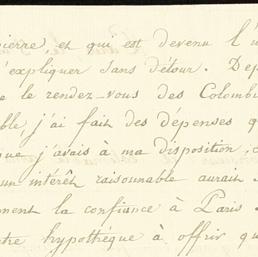 ierre, et qui est devenu l'u
s'expliquer sans détour. Dep
e le rendez-vous des Colombi
ble j'ai fait des dépenses q
que j'avais à ma disposition, c
un intérêt raisonnable aurait
ment la confiance à Paris
tre hypothéque à offrir qu